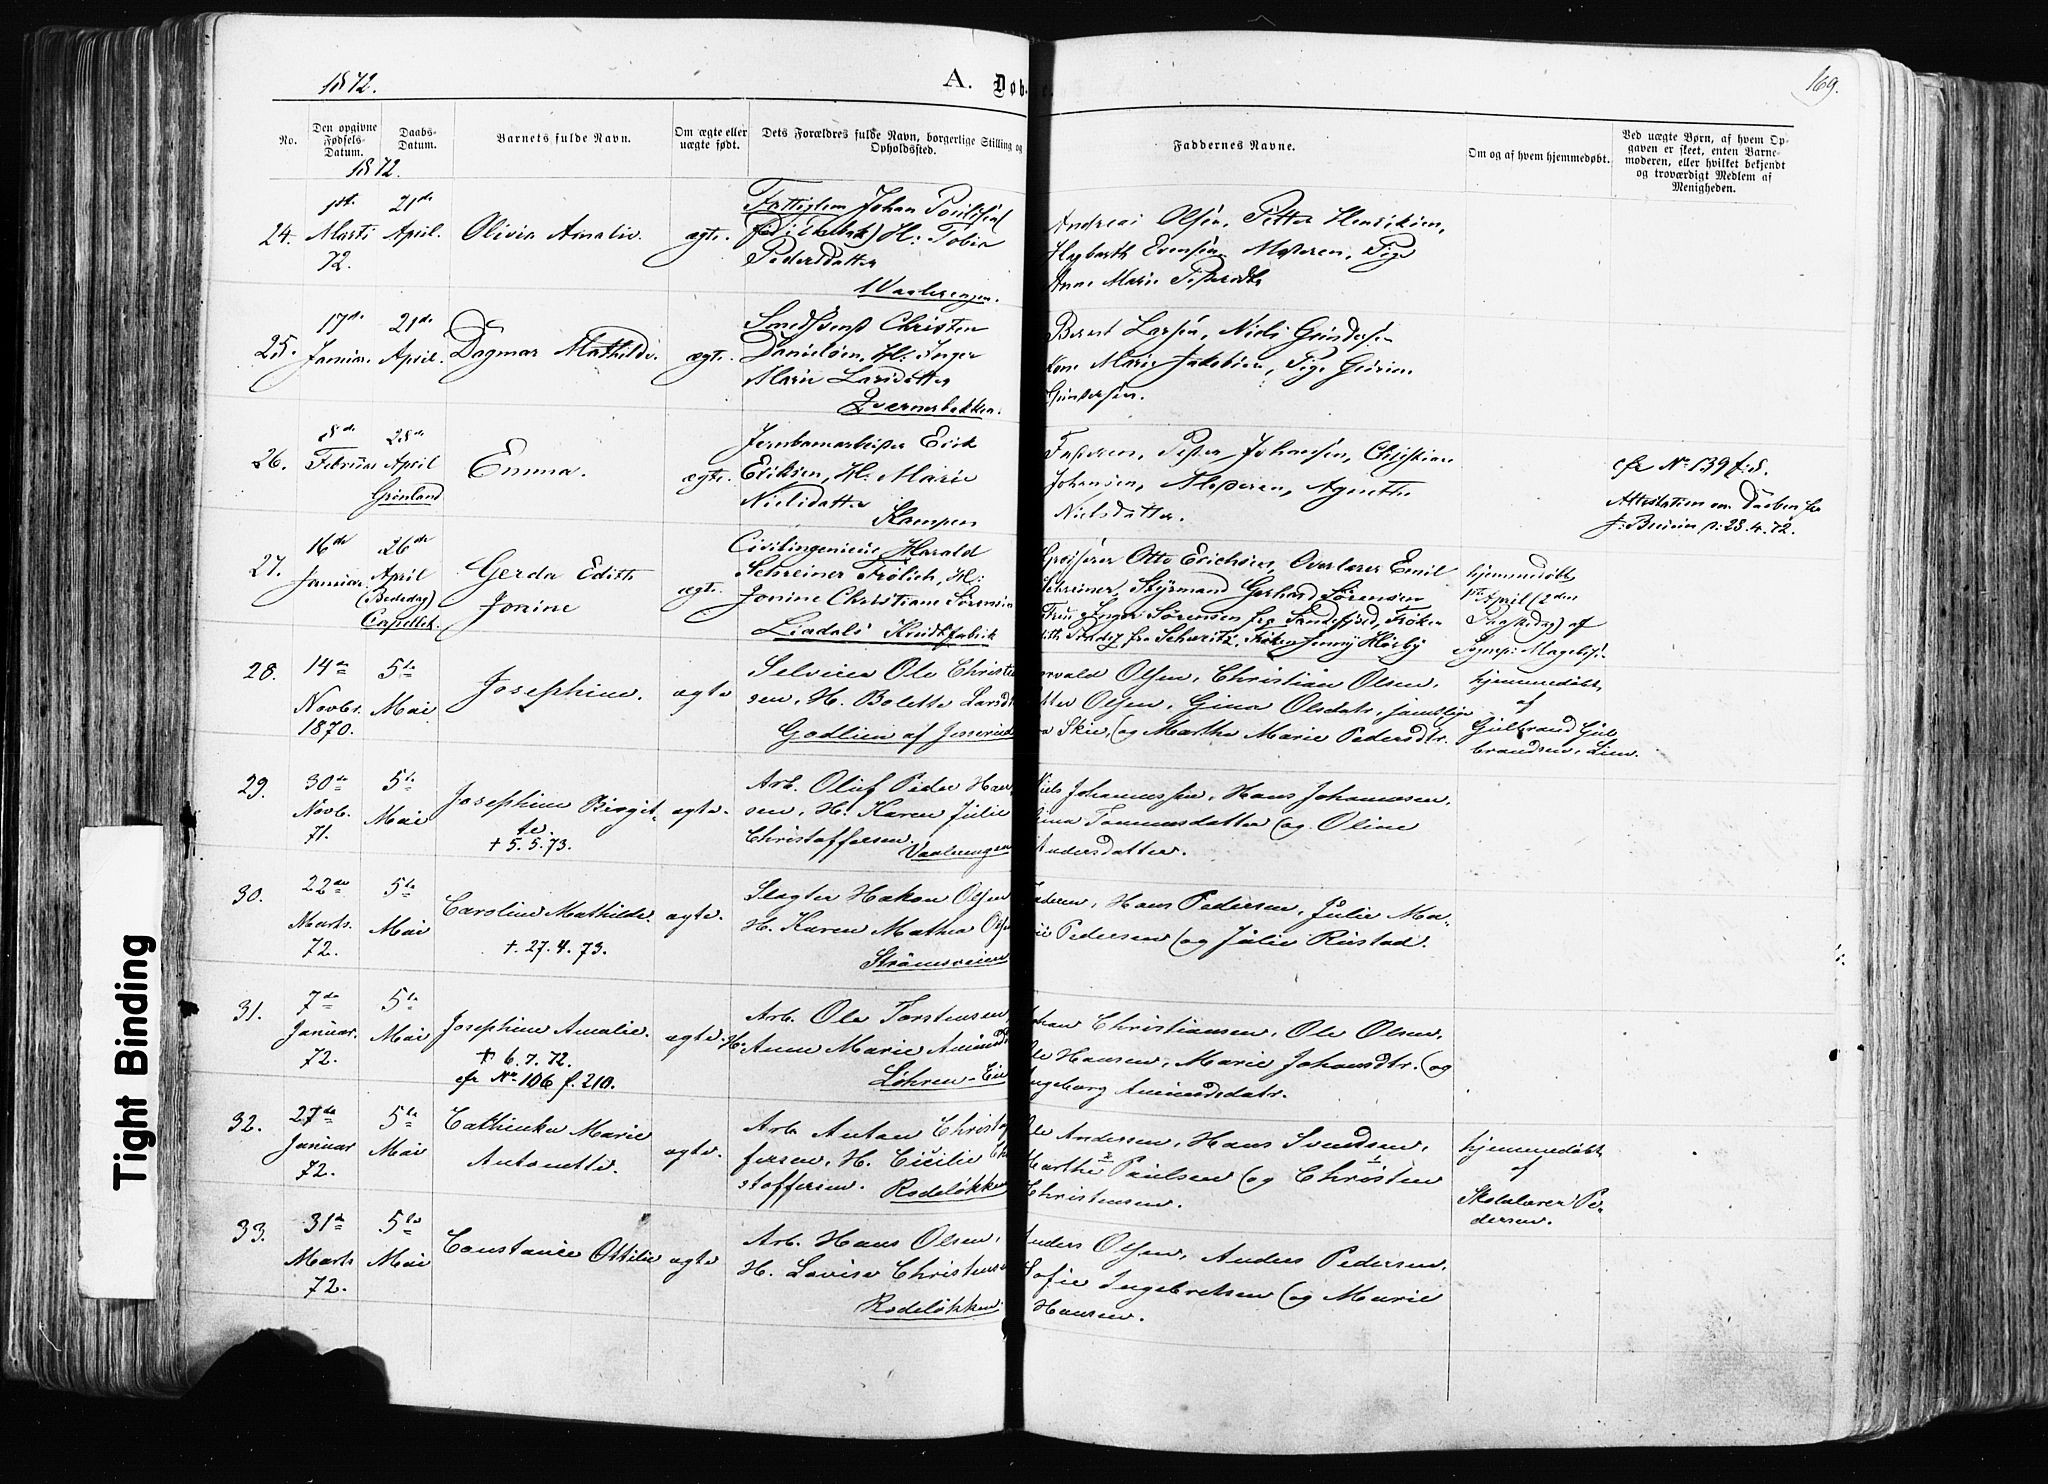 1872.
A. Døb
e.
169.
No.
Den opgivne Fødsels-Datum.
Daabs-Datum.
Barnets fulde Navn.
Om ægte eller uægte født.
Dets Forældres fulde Navn, borgerlige Stilling og Opholdssted.
Faddernes Navne.
Om og af hvem hjemmedøbt.
Ved uægte Børn, af hvem Opgaven er skeet, enten Barnemoderen, eller hvilket bekjendt og troværdigt Medlem af Menigheden.
1872.
24.
1ste Marts 72.
21de April.
Olivia Amalie.
ægte.
Johan
H: Tobia
Pedersdatter
Vaalerengen.
Andreas Olsen, Petter Henriksen,
Hagbarth Evensen, Moderen, Pige
Anne Marie
25.
17de Januar.
21de April.
Dagmar Mathilde.
ægte.
Smedsvend Christen
Danielsen, H: Inger
Marie Larsdatter
Kværnerbakken.
Bernt Larsen, Niels Gundersen
Kone Marie Jakobsen, Pige
Gundersen.
26.
8de Februar
28de April
Grønland
Emma.
ægte.
Jernbanearbeider Erik
Eriksen, H: Marie
Nielsdatter
Kampen
Faderen, Peder Johansen, Christian
Johansen, Moderen, Agnethe
Nielsdatter.
cfr No 139 f. 8.
Attestation om Daaben fra
23.4.72.
27.
16de Januar.
26de April
(Bededag)
Capellet.
Gerda Edith
Jonine
ægte.
Civilingeniør Harald
Schreiner Frølich, H:
Jonine Christiane Sørensen
Grosserer Otto Erichsen, Overlærer Emil
Schreiner, Styrmand Gerhard Sørensen
Fru Inger Sørensen fra Sandefjord, Frøken
Frøken Jenny
hjemmedøbt
1ste April (2den
Paaskedag) af
28.
14de Novbr. 1870.
5te Mai
Josephine.
ægte
Ole Christen
sen, H. Bolette Larsdtr
Godlien af
Olsen, Christian Olsen,
Olsen, Gina Olsdatr, samtlige
fra Skie, og Marthe Marie Pedersdtr.
hjemmedøbt
af
Gulbrand Gul
brandsen, Lien.
29.
30de Novb. 71.
5te Mai
Josephine Birgit-
te.
† 5.5.73.
ægte.
Arb. Oluf Peder Han
sen, H. Karen Julie
Christoffersen.
Vaalerengen
Niels Johannessen, Hans Johannesen,
Tommesdatter og Oline
Andersdatter.
30.
22de Marts. 72.
5te Mai
Caroline Mathilde.
† 27.4.73.
ægte.
Slagter Hakon Olsen
H. Karen Mathea Olsen
Strømsveien
Faderen, Hans Pedersen, Julie Ma-
rie Pedersen og Julie Rustad.
31.
7de Januar. 72.
5te Mai
Josephine Amalie.
† 6.7.72.
cfr No 106 f. 210.
ægte.
Arb. Ole Torstensen
H. Anne Marie
Johan Christiansen, Ole Olsen,
Ole Hansen, Marie Johansdtr. og
Ingeborg Amundsdatr.
32.
27de Januar 72.
5te Mai
Cathinka Marie
Antonette.
ægte.
Arb. Anton Christof
fersen, H. Cicilie Chri
stoffersen.
Rodeløkken
Ole Andersen, Hans Svendsen,
Marthe Paulsen og Christen
Christensen.
hjemmedøbt
af
Skolelærer Pe-
dersen.
33.
31de Marts 72.
5te Mai
Constance Ottilie
ægte
Arb. Hans Olsen,
H. Lovise Christensen
Rodeløkken
Anders Olsen, Anders Pedersen,
Sofie Ingebretsen og Marie
Hansen.
Tight Binding